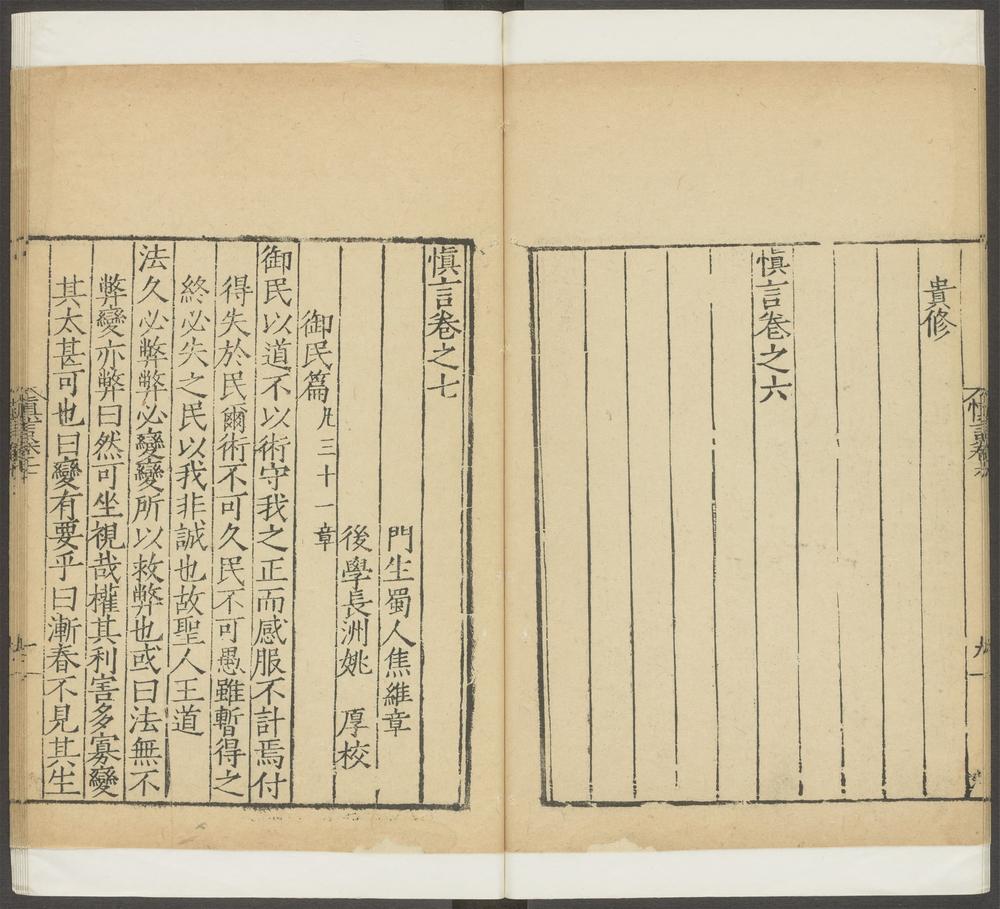 貴修
慎言卷之六
慎言卷之七
門生蜀人焦維章
後學長洲姚　厚校
御民篇凡三十一章
御民以道不以術守我之正而感服不計焉付
得失於民爾術不可久民不可愚雖暫得之
終必失之民以我非誠也故聖人王道
法久必弊弊必變變所以救弊也或曰法無不
弊變亦弊曰然可坐視哉權其利害多寡變
其太甚可也曰變有要乎曰漸春不見其生